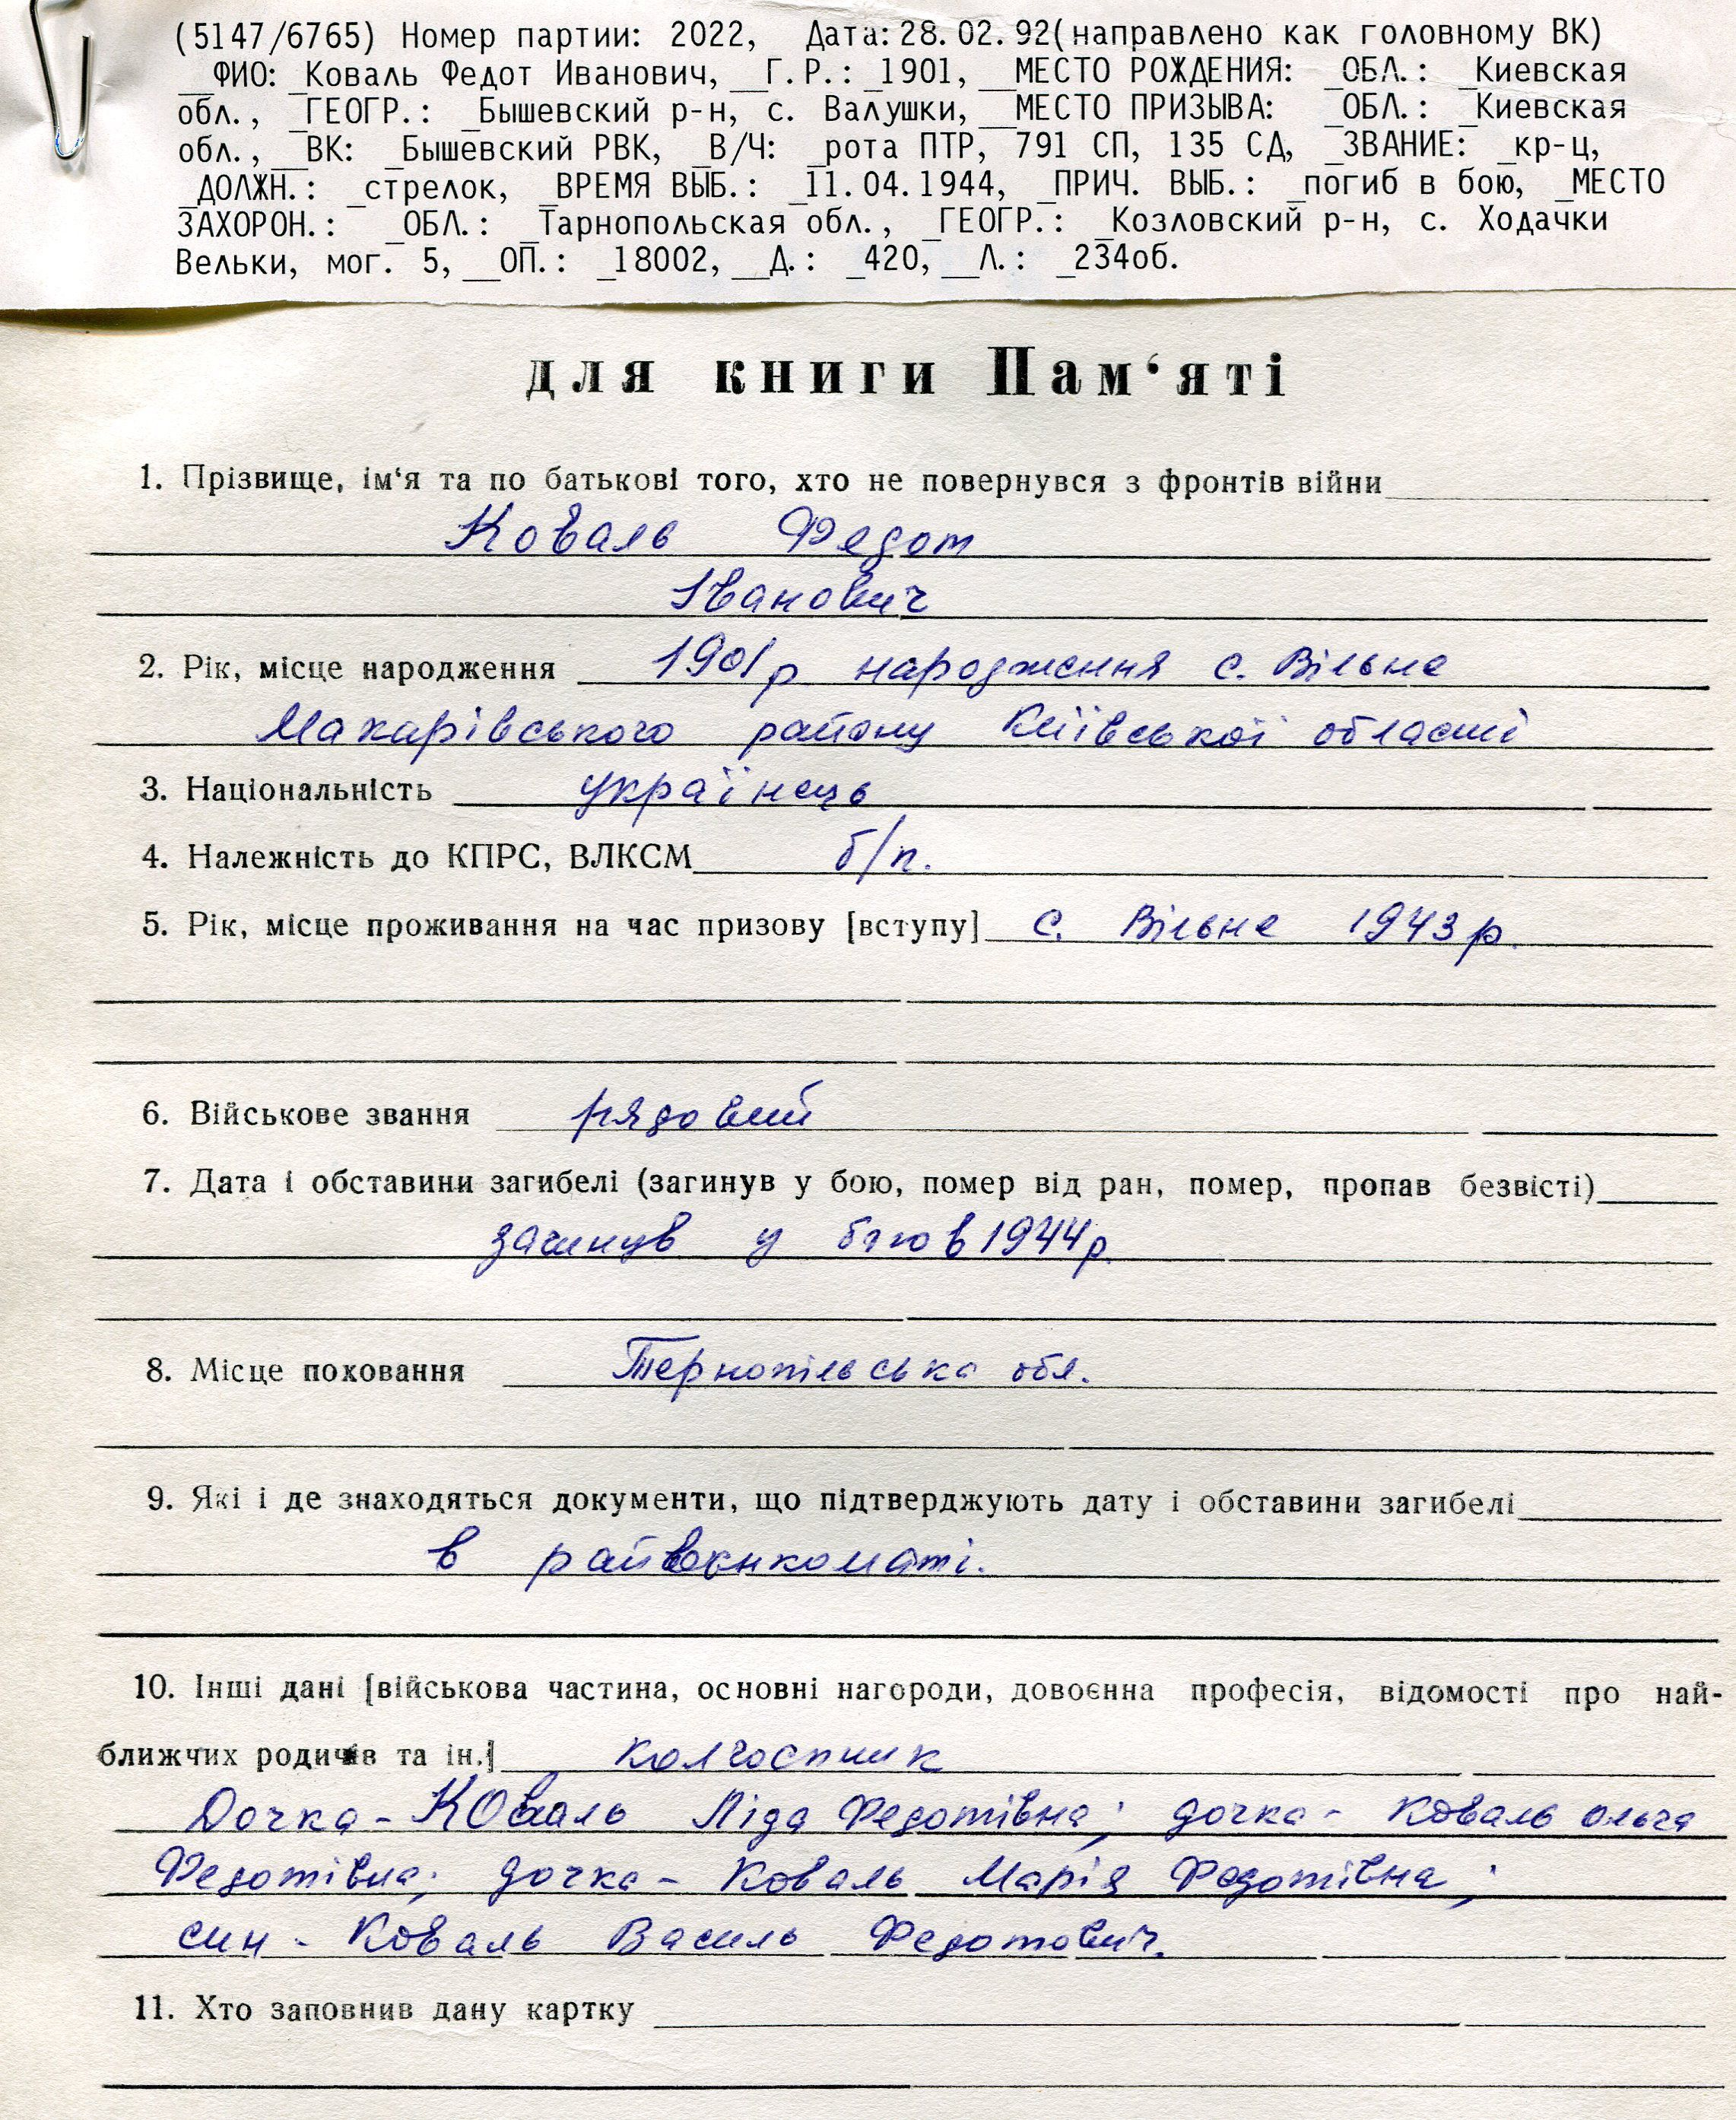 (5147/6765) Номер партии: 2022, Дата: 28.02.92(направлено как головному ВК)
__ФИО: _Коваль Федот Иванович, __Г.Р.: _1901, __МЕСТО РОЖДЕНИЯ: _ОБЛ.: _Киевская
обл., _ГЕОГР.: _Бышевский р-н, с. Валушки, __МЕСТО ПРИЗЫВА: _ОБЛ.: _Киевская
обл., __ВК: _Бышевский РВК, _В/Ч: _рота ПТР, 791 СП, 135 СД, _ЗВАНИЕ: _кр-ц,
_ДОЛЖН.: _стрелок, _ВРЕМЯ ВЫБ.: _11.04.1944, _ПРИЧ. ВЫБ.: _погиб в бою, _МЕСТО
ЗАХОРОН.: _ОБЛ.: _Тарнопольская обл., _ГЕОГР.: _Козловский р-н, с. Ходачки
Вельки, мог. 5, __ОП.: _18002, __Д.: _420, __Л.: _234об.
для книги Пам‘яті
1. Прізвище, ім‘я та по батькові того, хто не повернувся з фронтів війни
Коваль Федот
Іванович
2. Рік, місце народження 1901р народження с. Вільне
Макарівського району Київської області
3. Національність українець
4. Належність до КПРС, ВЛКСМ б/п.
5. Рік, місце проживання на час призову [вступу] с. Вільне 1943р.
6. Військове звання рядовий
7. Дата і обставини загибелі (загинув у бою, помер від ран, помер, пропав безвісті)
загинув у бою в 1944р.
8. Місце поховання Тернопільська обл.
9. Які і де знаходяться документи, що підтверджують дату і обставини загибелі
в райвоєнкоматі.
10. Інші дані [військова частина, основні нагороди, довоєнна професія, відомості про най-
ближчих родичів та ін.] колгоспник
Дочка - Коваль Ліда Федотівна; дочка - Коваль Ольга
Федотівна; дочка - Коваль Марія Федотівна;
син - Коваль Василь Федотович.
11. Хто заповнив дану картку